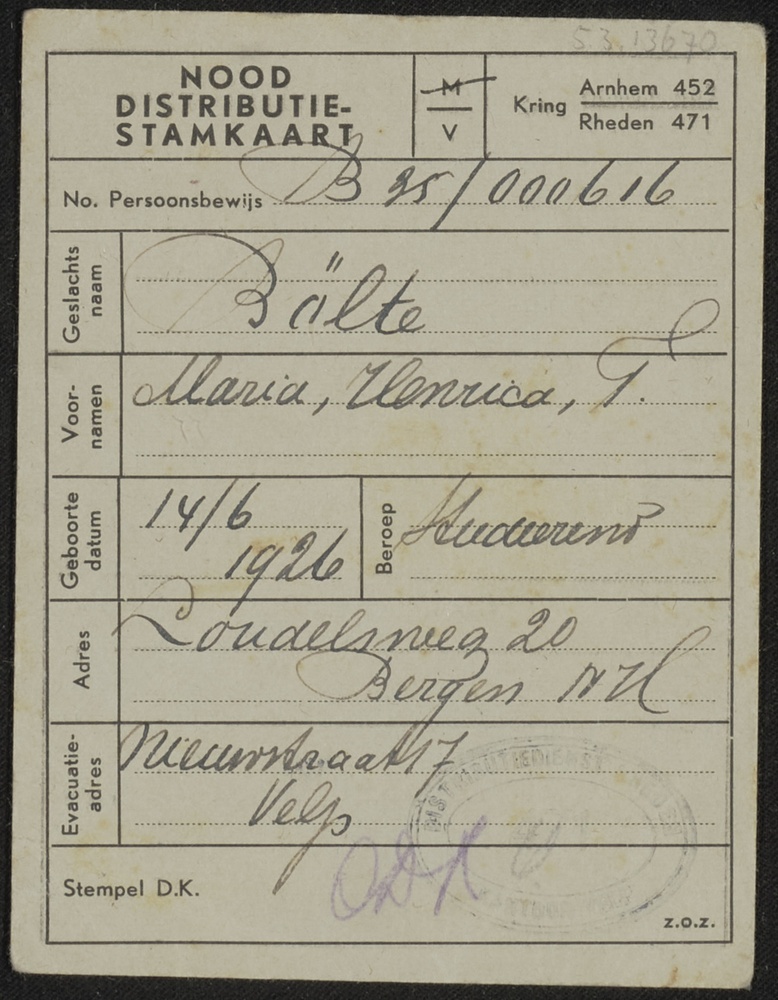 53.13670
NOOD
DISTRIBUTIE-
STAMKAART
M
V
Kring Arnhem 452
Rheden 471
No. Persoonsbewijs B 25/000616
Geslachts
naam
Bölte
Voor-
namen
Maria, Henrica, T.
Geboorte
datum
14/6
1926
Beroep
Studerend
Adres
Loudelsweg 20
Bergen NH
Evacuatie-
adres
Nieuwstraat 17
Velp
DISTRIBUTIEDIENST
Stempel D.K.
z.o.z.